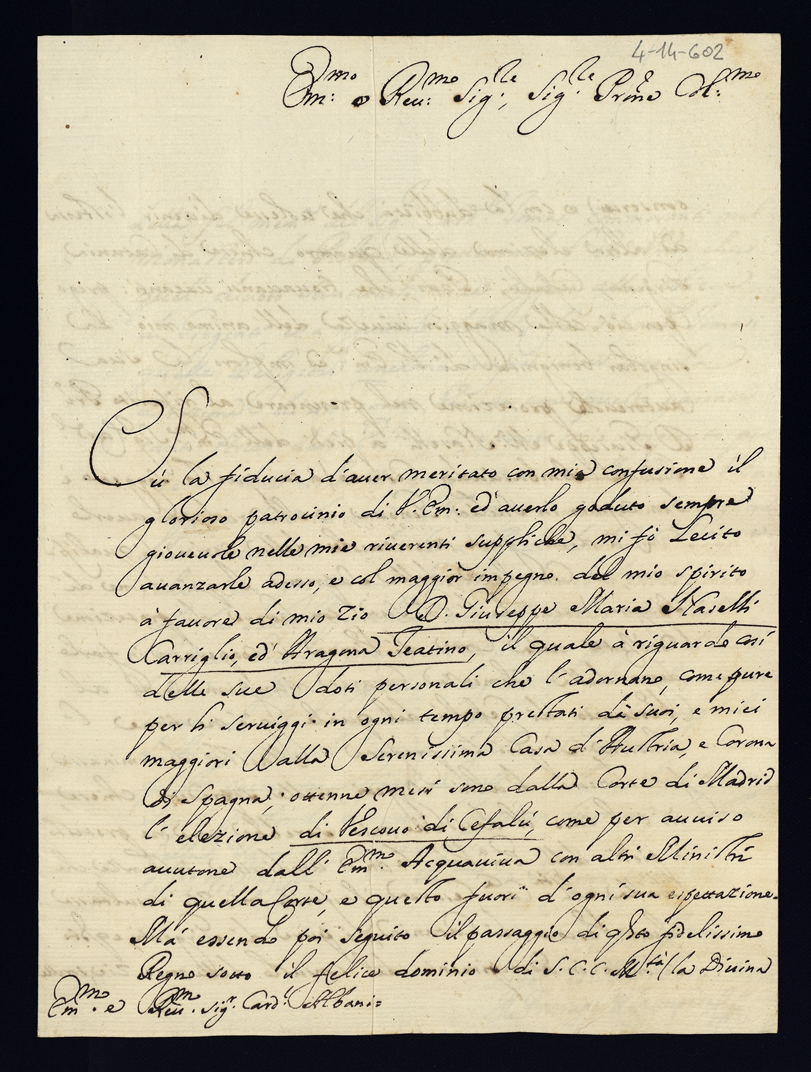 4-14-602
Em:mo e Reu:mo Sig:re, Sig:re Prone Col:mo
Sù la fiducia d'auer meritato con mia confusione il
glorioso patrocinio di V. Em: ed' auerlo goduto sempre
gioueuole nelle mie riuerenti suppliche, mi fò Lecito
auanzarle adesso, e col maggior impegno del mio spirito
à fauore di mio Zio D. Giuseppe Maria Naselli
Carriglio, ed' Aragona Teatino, il quale à riguardo così
delle sue doti personali che l'adornano, come pure
per li seruiggi in ogni tempo prestati da suoi, e miei
maggiori alla Serenissima Casa d'Austria, e Corona
di Spagna, ottenne mesi sono dalla Corte di Madrid
l'elezione di Vescouo di Cefalù, come per auuiso
auutone dall' Em:mo Acquauiua con altri Ministri
di quella Corte, e questo fuori d'ogni sua espettazione.
Mà essendo poi seguito il passaggio di qsto fidelissimo
Regno sotto il felice dominio di S. C. C. M.tà (la Diuina
Em:mo e Reu:mo Sig:r Card: Albani=